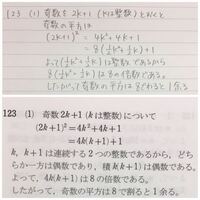 123 (1) 奇数を2k+1(kは整数)とおくと
奇数の平方は
(2k+1)² = 4k²+4k+1
= 8(½k²+½k)+1
よって(½k²+½k)は整数であるから
8(½k²+½k)は8の倍数である。
したがって奇数の平方は8でわると1余る
123 (1) 奇数 2k+1 (kは整数)について
(2k+1)²=4k²+4k+1
=4k(k+1)+1
k, k+1は連続する2つの整数であるから, どち
らか一方は偶数であり, 積k(k+1)は偶数である。
よって, 4k(k+1)は8の倍数である。
したがって, 奇数の平方は8で割ると1余る。